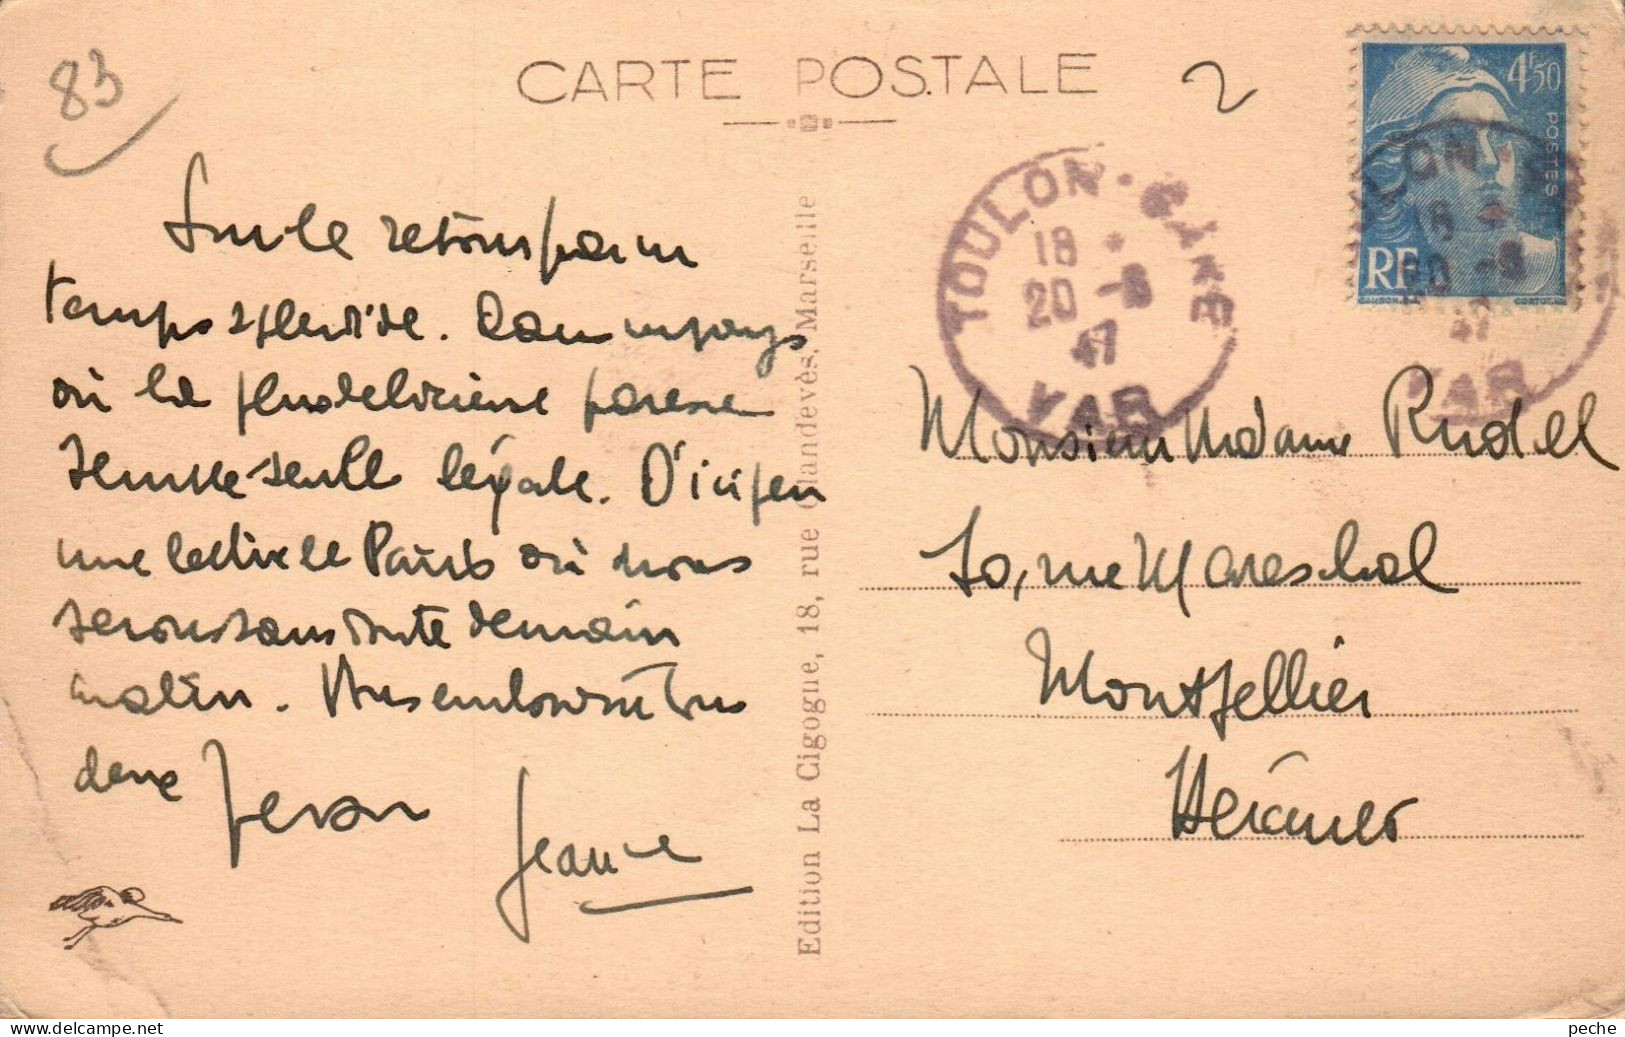 83
CARTE POSTALE
2
4F50
POSTES
RF
TOULON · GARE
18 *
20 -8
47
VAR
Sur le retour par un
temps splendide. Dans un pays
où la plus délicieuse paresse
semble seule légale. D'ici peu
une lettre de Paris où nous
serons sans doute demain
matin. Nous embrassons tous
deux
Jeanne
Monsieur Madame Rudel
10, rue Mareschal
Montpellier
Hérault
Edition La Cigogne, 18, rue Glandevès, Marseille
peche